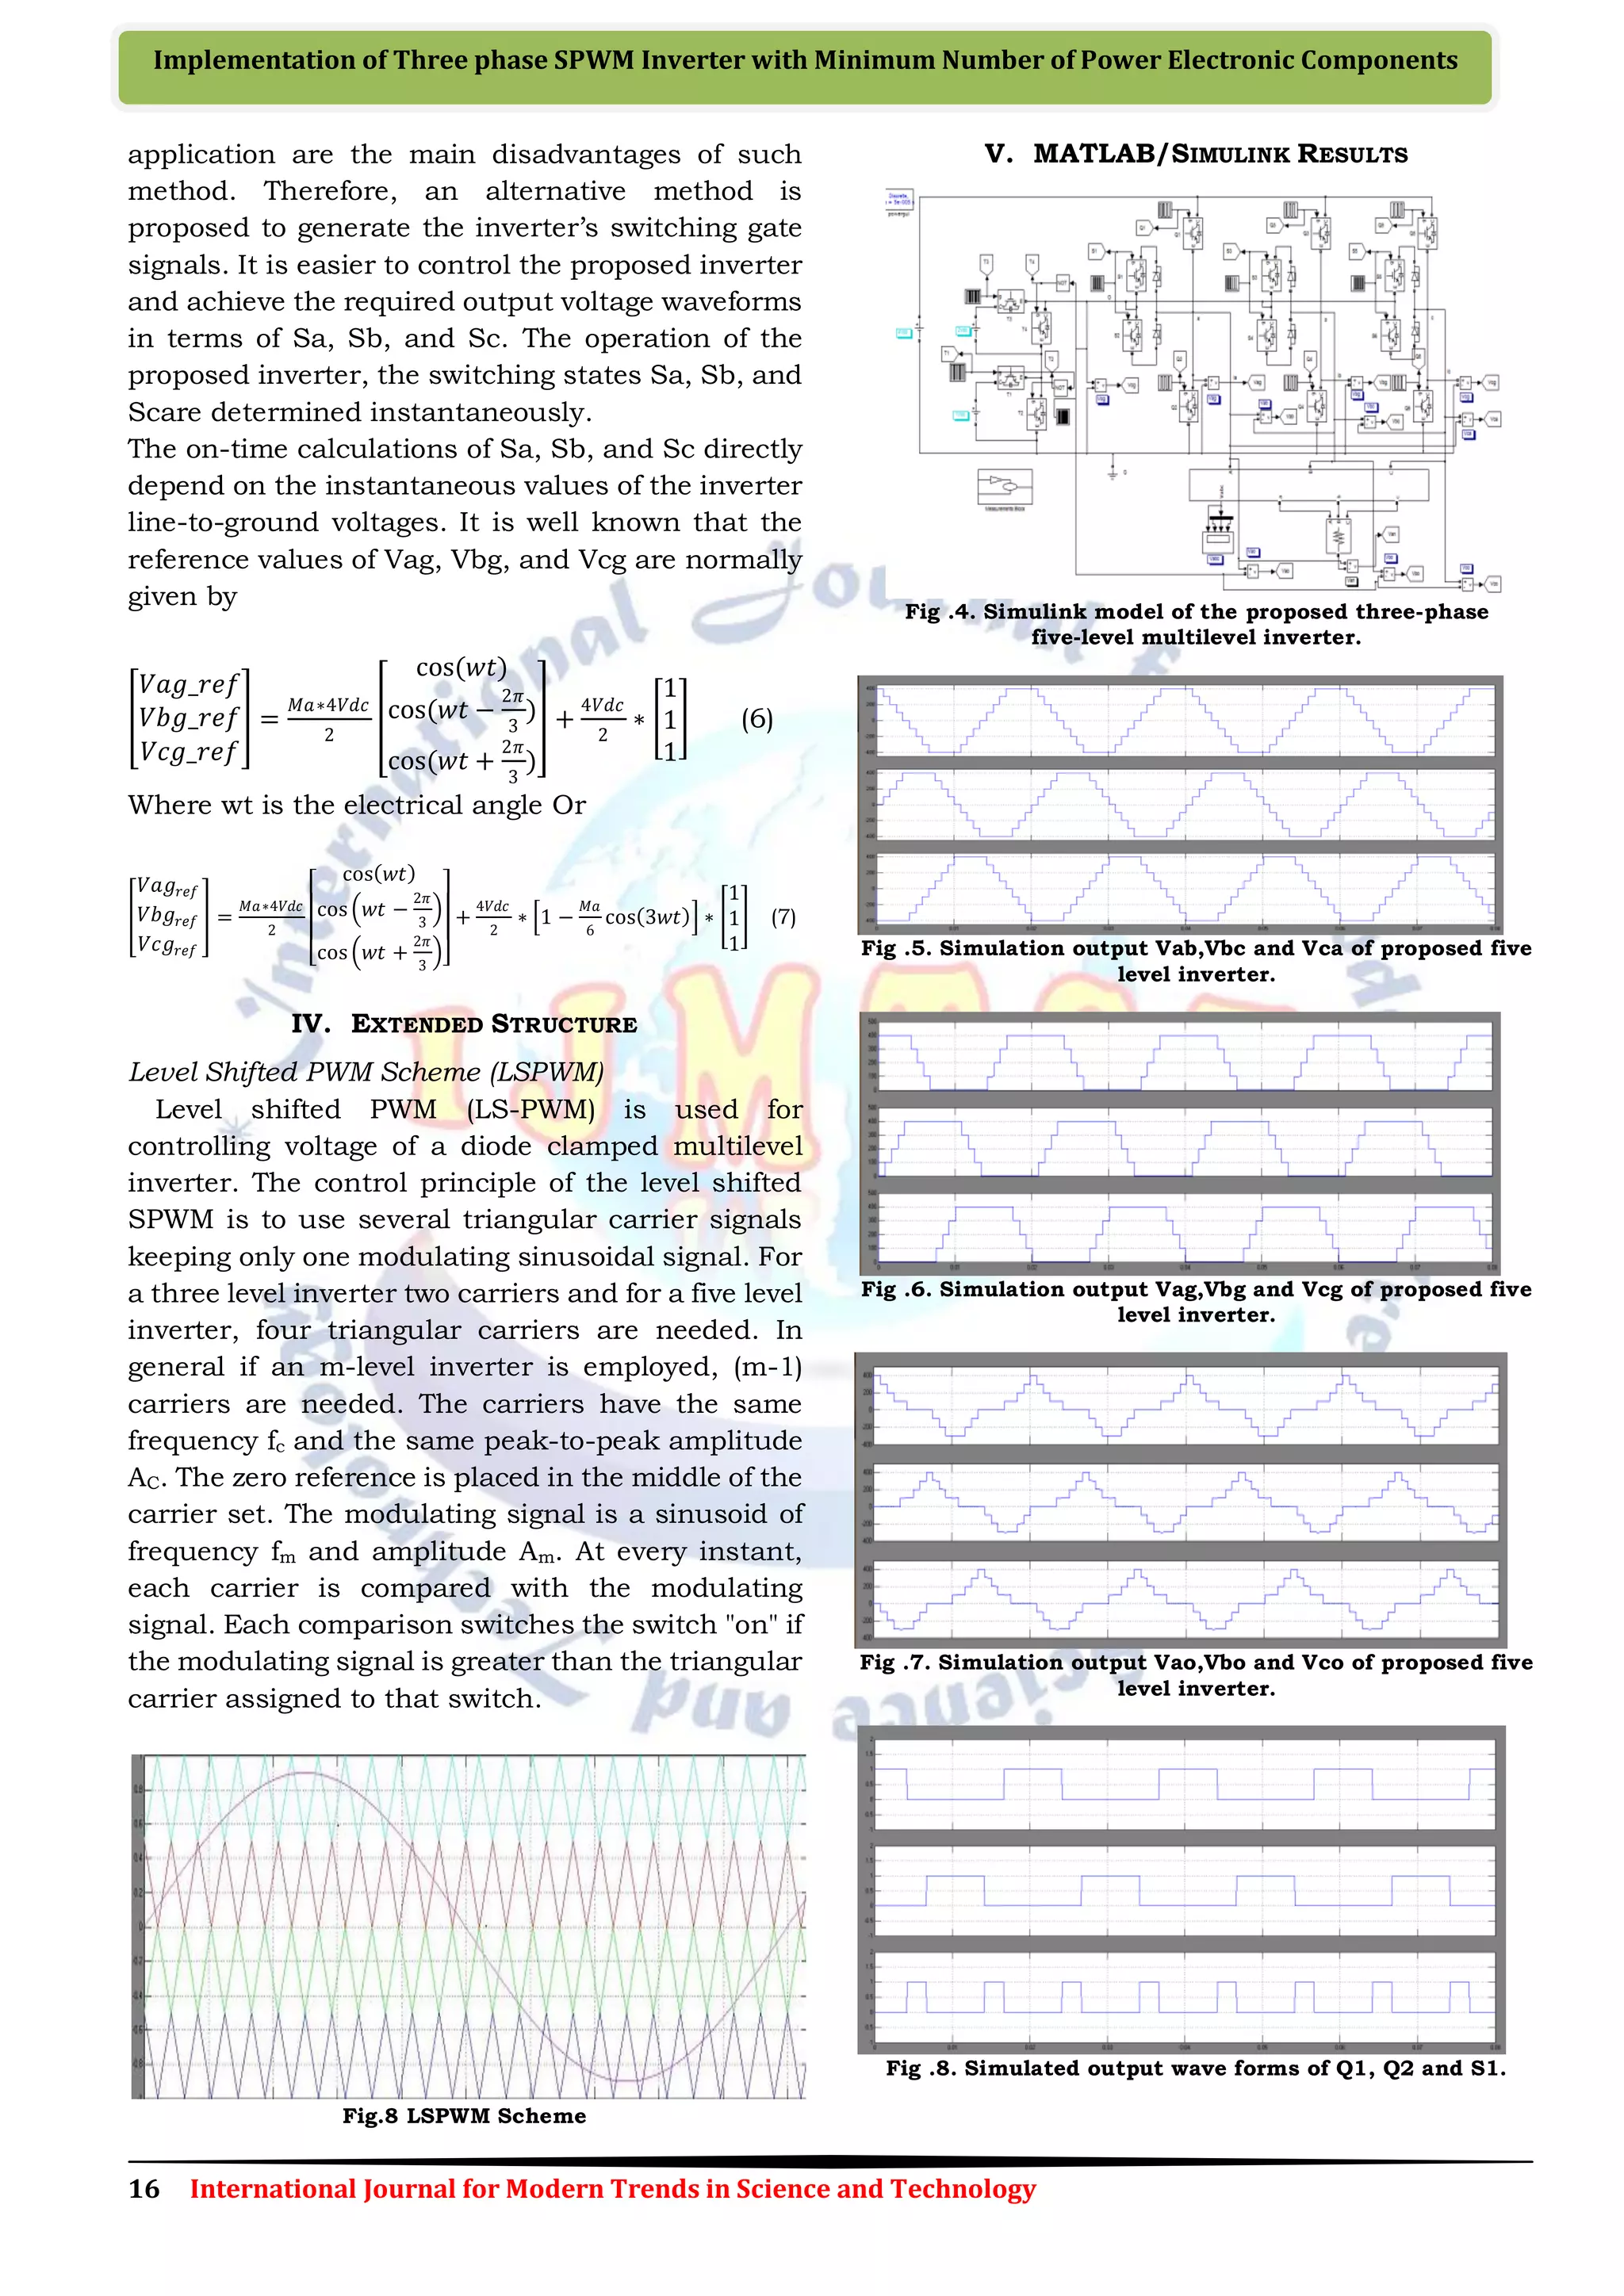 Implementation of Three phase SPWM Inverter with Minimum Number of Power Electronic Components
application are the main disadvantages of such
method. Therefore, an alternative method is
proposed to generate the inverter’s switching gate
signals. It is easier to control the proposed inverter
and achieve the required output voltage waveforms
in terms of Sa, Sb, and Sc. The operation of the
proposed inverter, the switching states Sa, Sb, and
Scare determined instantaneously.
The on-time calculations of Sa, Sb, and Sc directly
depend on the instantaneous values of the inverter
line-to-ground voltages. It is well known that the
reference values of Vag, Vbg, and Vcg are normally
given by
[Vag_ref Vbg_ref Vcg_ref] = Ma∗4Vdc/2 [cos(wt) cos(wt − 2π/3) cos(wt + 2π/3)] + 4Vdc/2 ∗ [1 1 1] (6)
Where wt is the electrical angle Or
[Vag_ref Vbg_ref Vcg_ref] = Ma∗4Vdc/2 [cos(wt) cos(wt − 2π/3) cos(wt + 2π/3)] + 4Vdc/2 ∗ [1 − Ma/6 cos(3wt)] ∗ [1 1 1] (7)
IV. EXTENDED STRUCTURE
Level Shifted PWM Scheme (LSPWM)
Level shifted PWM (LS-PWM) is used for
controlling voltage of a diode clamped multilevel
inverter. The control principle of the level shifted
SPWM is to use several triangular carrier signals
keeping only one modulating sinusoidal signal. For
a three level inverter two carriers and for a five level
inverter, four triangular carriers are needed. In
general if an m-level inverter is employed, (m-1)
carriers are needed. The carriers have the same
frequency fc and the same peak-to-peak amplitude
AC. The zero reference is placed in the middle of the
carrier set. The modulating signal is a sinusoid of
frequency fm and amplitude Am. At every instant,
each carrier is compared with the modulating
signal. Each comparison switches the switch "on" if
the modulating signal is greater than the triangular
carrier assigned to that switch.
Fig.8 LSPWM Scheme
V. MATLAB/SIMULINK RESULTS
Fig .4. Simulink model of the proposed three-phase
five-level multilevel inverter.
Fig .5. Simulation output Vab,Vbc and Vca of proposed five
level inverter.
Fig .6. Simulation output Vag,Vbg and Vcg of proposed five
level inverter.
Fig .7. Simulation output Vao,Vbo and Vco of proposed five
level inverter.
Fig .8. Simulated output wave forms of Q1, Q2 and S1.
16 International Journal for Modern Trends in Science and Technology